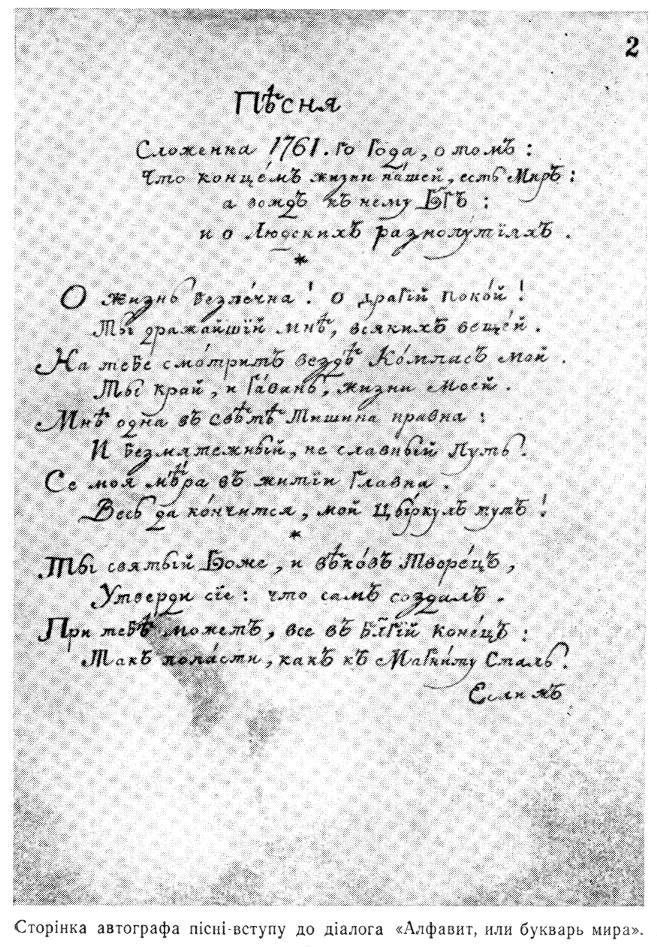 2
Пѣсня
Сложенна 1761.го Года, о томъ:
Что концемъ жизни нашей, есть Миръ:
а вождъ къ нему Бг҃ъ:
и о Людскихъ разнопутїяхъ.
*
О жизнь безпечна! о драгій покой!
Ты дражайшїй мнѣ, всякихъ вещей.
На тебе смотритъ вездѣ Компасъ мой.
Ты край, и Гавань, жизни моей.
Мнѣ одна въ свѣтѣ тишина нравна:
И безмятежный, не славный Путь.
Се моя мѣра въ житїи Главна.
Весь да кончится, мой Цыркулъ тутъ!
*
Ты святый Боже, и вѣковъ Творецъ,
Утверди сїе: что самъ создалъ.
При тебѣ можетъ, все въ Бл҃гїй конецъ:
Такъ попасти, какъ къ Магниту Сталь.
Если жъ
Сторінка автографа пісні-вступу до діалога «Алфавит, или букварь мира».